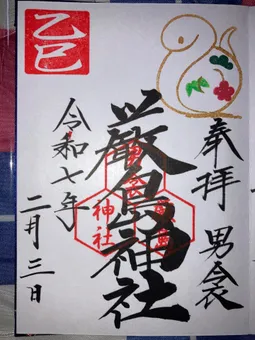 奉拝 男衾
厳島神社
神社
乙巳
令和七年
二月三日